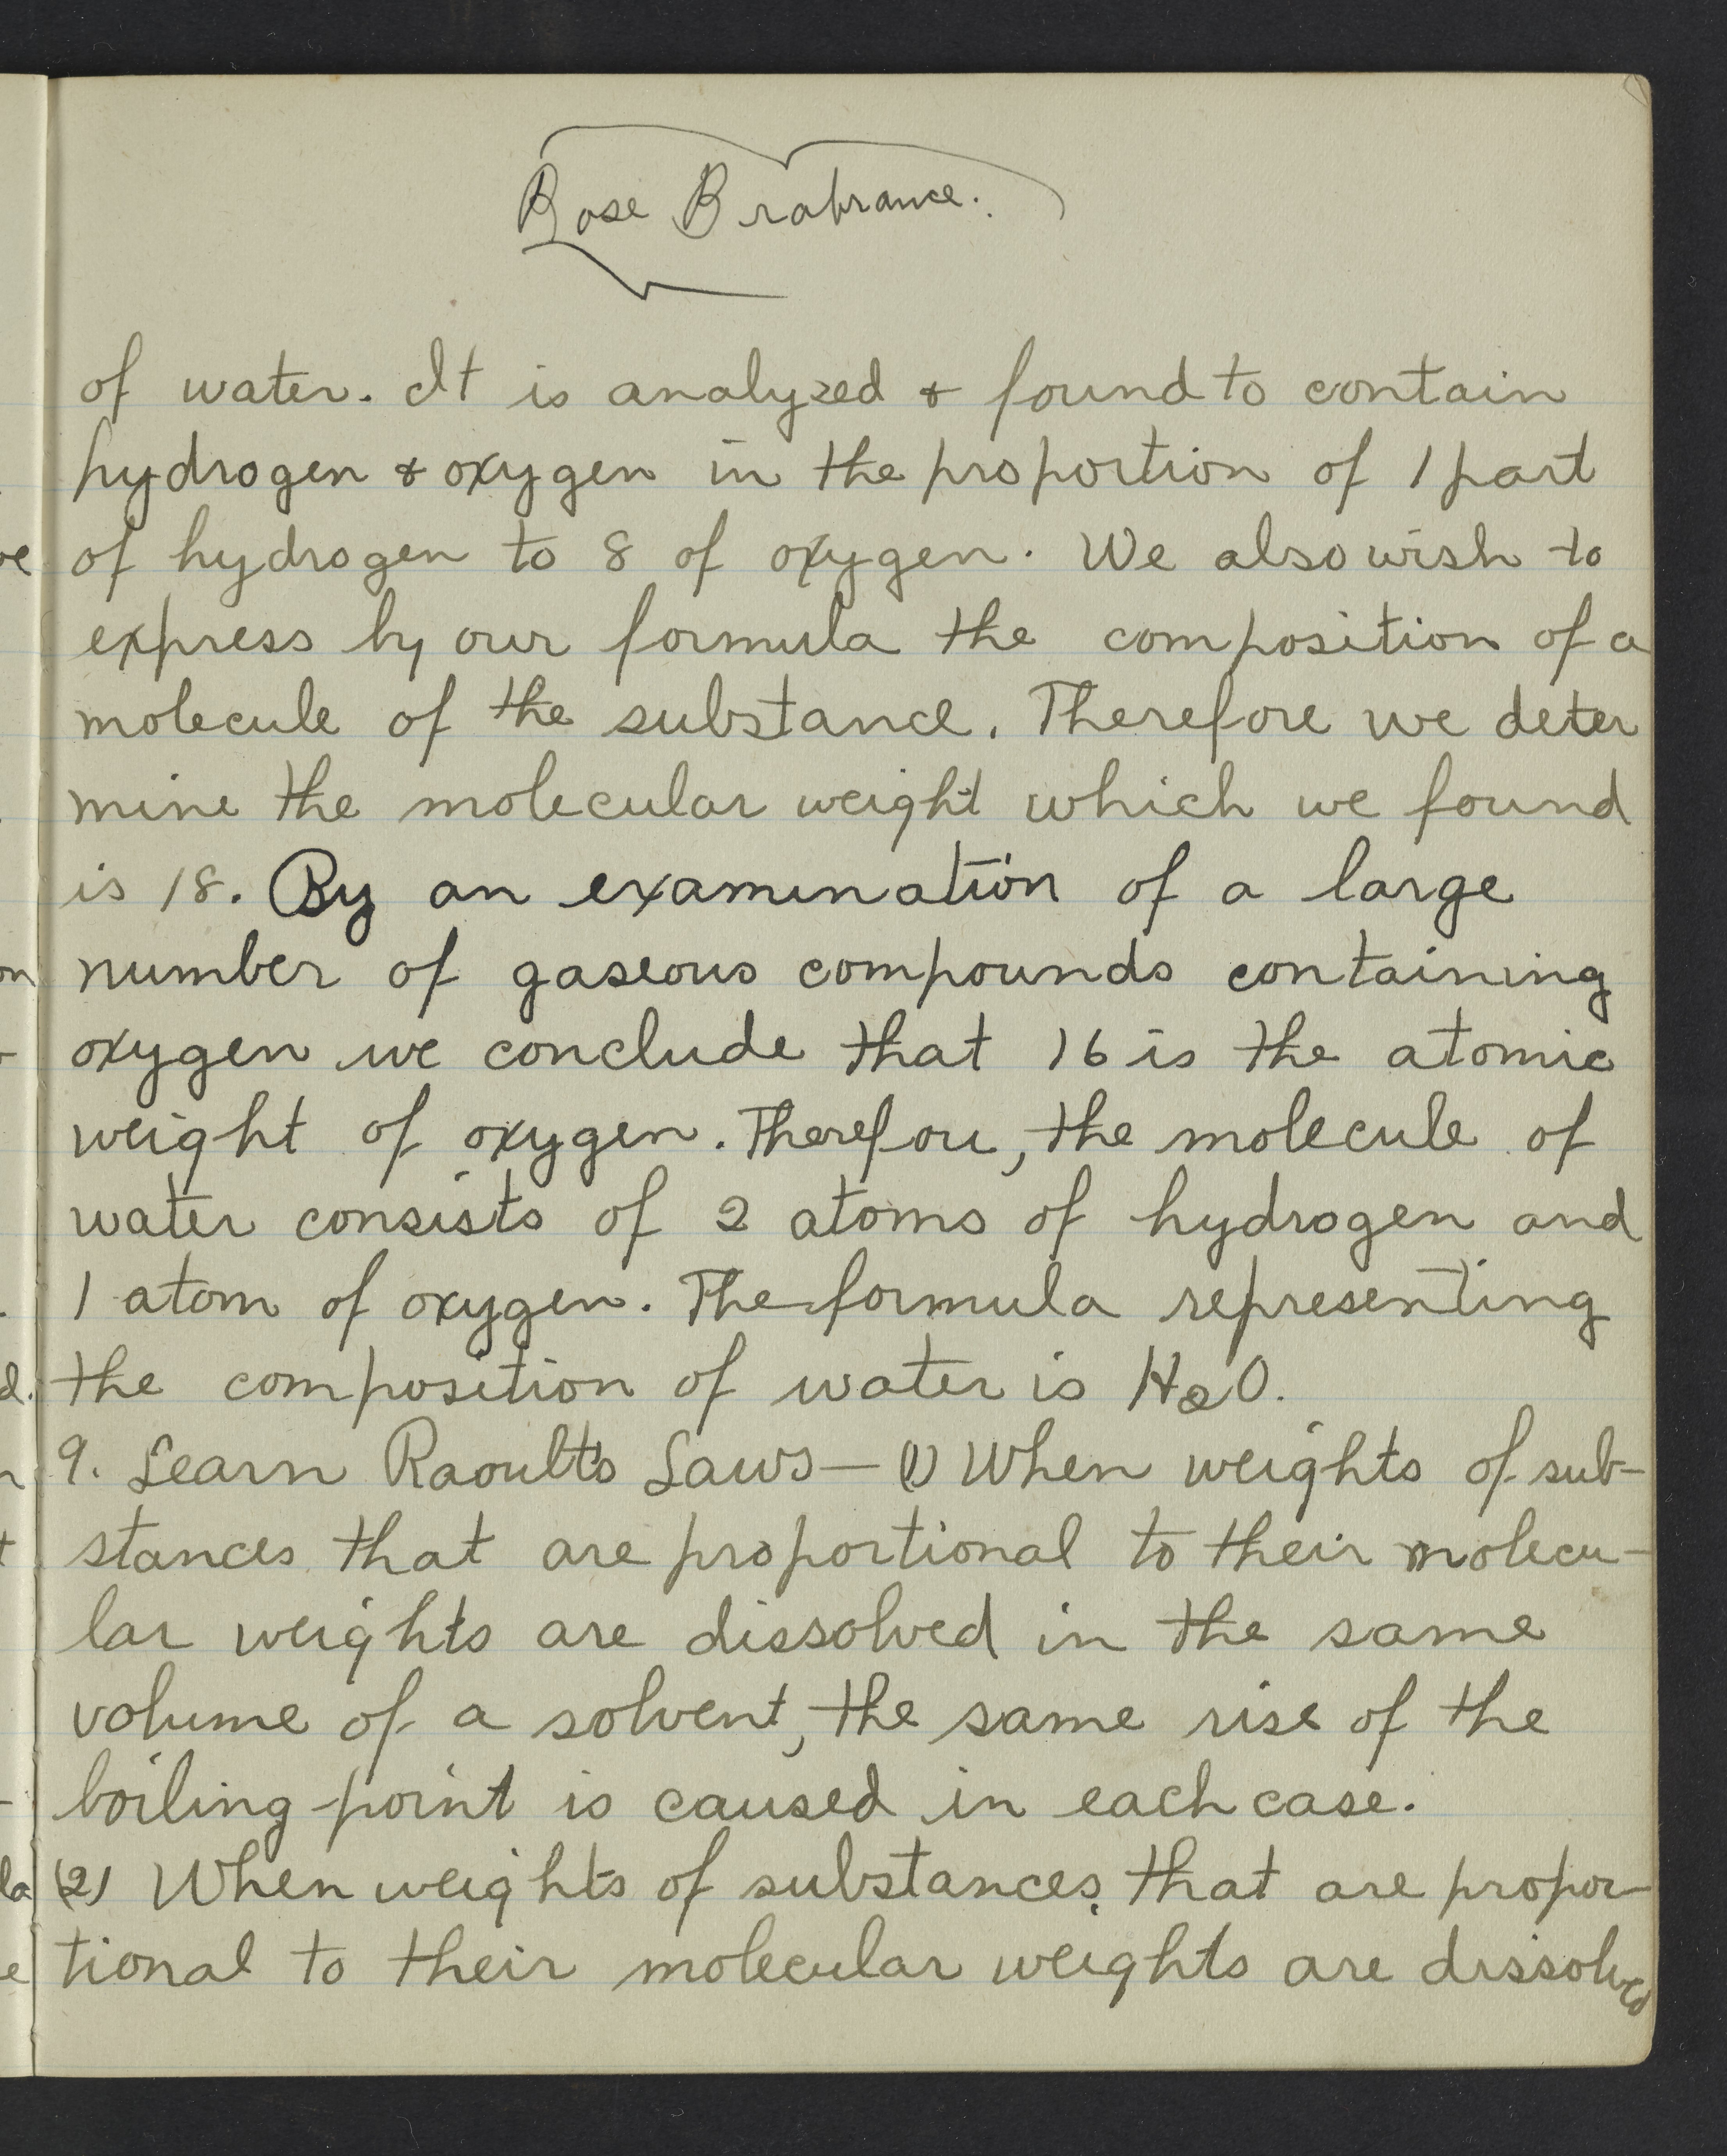 Rose Brabrance.
of water. It is analyzed & found to contain
hydrogen & oxygen in the proportion of 1 part
of hydrogen to 8 of oxygen. We also wish to
express by our formula the composition of a
molecule of the substance. Therefore we deter
mine the molecular weight which we found
is 18. By an examination of a large
number of gaseous compounds containing
oxygen we conclude that 16 is the atomic
weight of oxygen. Therefore, the molecule of
water consists of 2 atoms of hydrogen and
1 atom of oxygen. The formula representing
the composition of water is H2O.
9. Learn Raoult's Laws — (1) When weights of sub-
stances that are proportional to their molecu-
lar weights are dissolved in the same
volume of a solvent, the same rise of the
boiling-point is caused in each case.
(2) When weights of substances that are propor-
tional to their molecular weights are dissolved